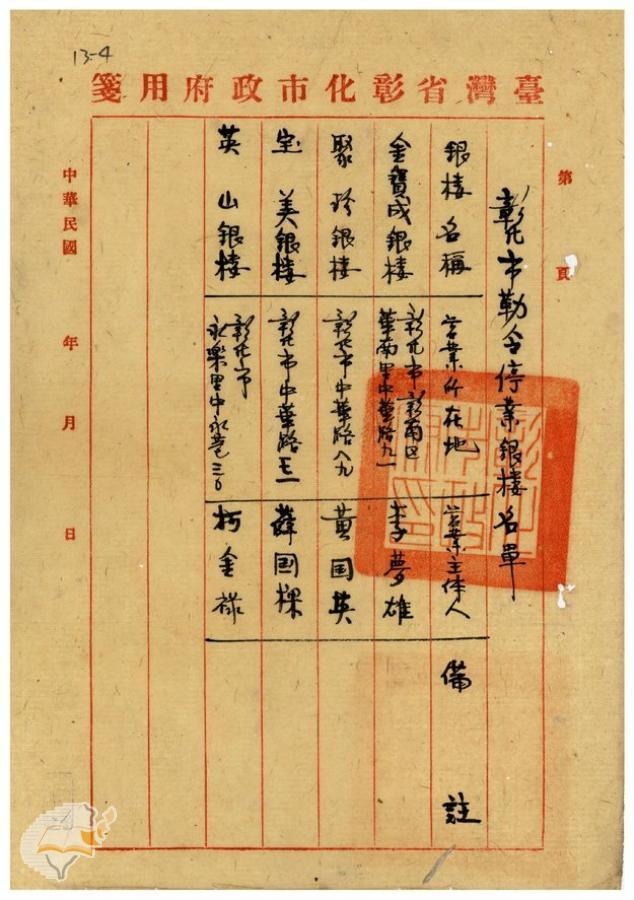 13-4
臺灣省彰化市政府用箋
第 頁
彰化市勒令停業銀楼名單
銀楼名稱 営業所在地 営業主体人 備註
金寶成銀楼 彰化市彰南区華南里中華路九一 李夢雄
聚珍銀楼 彰化市中華路八九 黃国英
宝美銀楼 彰化市中華路 薛国樑
英山銀楼 彰化市永樂里中永巷三6 柯金祿
中華民國 年 月 日